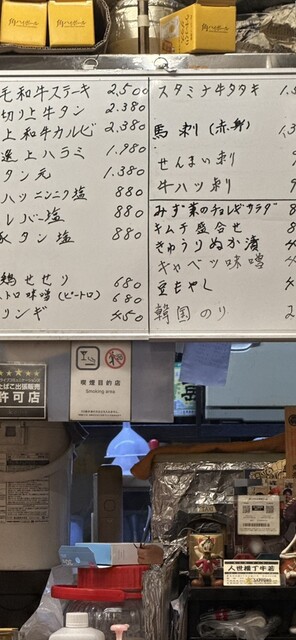 角ハイボール
角ハイボール
毛和牛ステーキ 2,500
切り上牛タン 2,380
上和牛カルビ 2,380
選上ハラミ 1,980
タン元 1,380
ハツニンニク塩 880
レバー塩 880
豚タン塩 880
鶏せせり 680
トロ味噌(ピートロ) 680
リンギ 450
スタミナ牛タタキ
馬刺(赤身)
せんまい刺
牛ハツ刺
みず菜のチョレギサラダ
キムチ盛合せ
きゅうりぬか漬
キャベツ味噌
豆もやし
韓国のり
たばこ出張販売
許可店
喫煙目的店
Smoking area
人世横丁牛若
SAPPORO